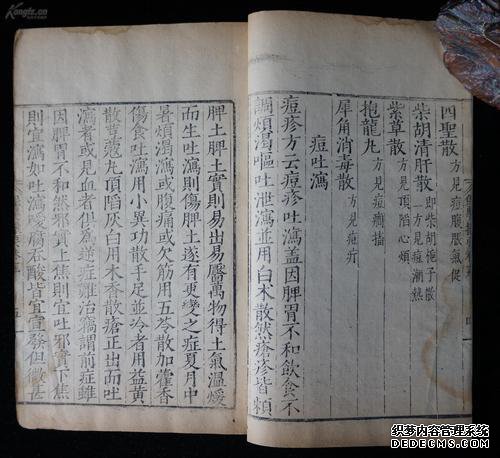 四聖散 方見痘腹脹氣促
柴胡清肝散 即柴胡梔子散 方見痘潮熱
紫草散 方見頂陷心煩
抱龍丸 方見痘癇搐
犀角消毒散 方見痘疔
痘吐瀉
痘疹方云痘疹吐瀉蓋因脾胃不和飲食不
調煩渴嘔吐泄瀉並用白朮散然瘡疹皆賴
脾土脾土實則易出易靨萬物得土氣溫煖
而生吐瀉則傷脾土遂有更變之症夏月中
暑煩渴瀉或腹痛或欠筋用五苓散加藿香
傷食吐瀉用小異功散手足並冷者用益黃
散荳蔻丸頂陷灰白用木香散瘡正出而吐
瀉者或見血者俱為逆症難治竊謂前症雖
因脾胃不和然邪實上焦則宜吐邪實下焦
則宜瀉如吐瀉嗳腐吞酸皆宜宣發但微甚
Kongfz.cn
脚本之家内容管理系统